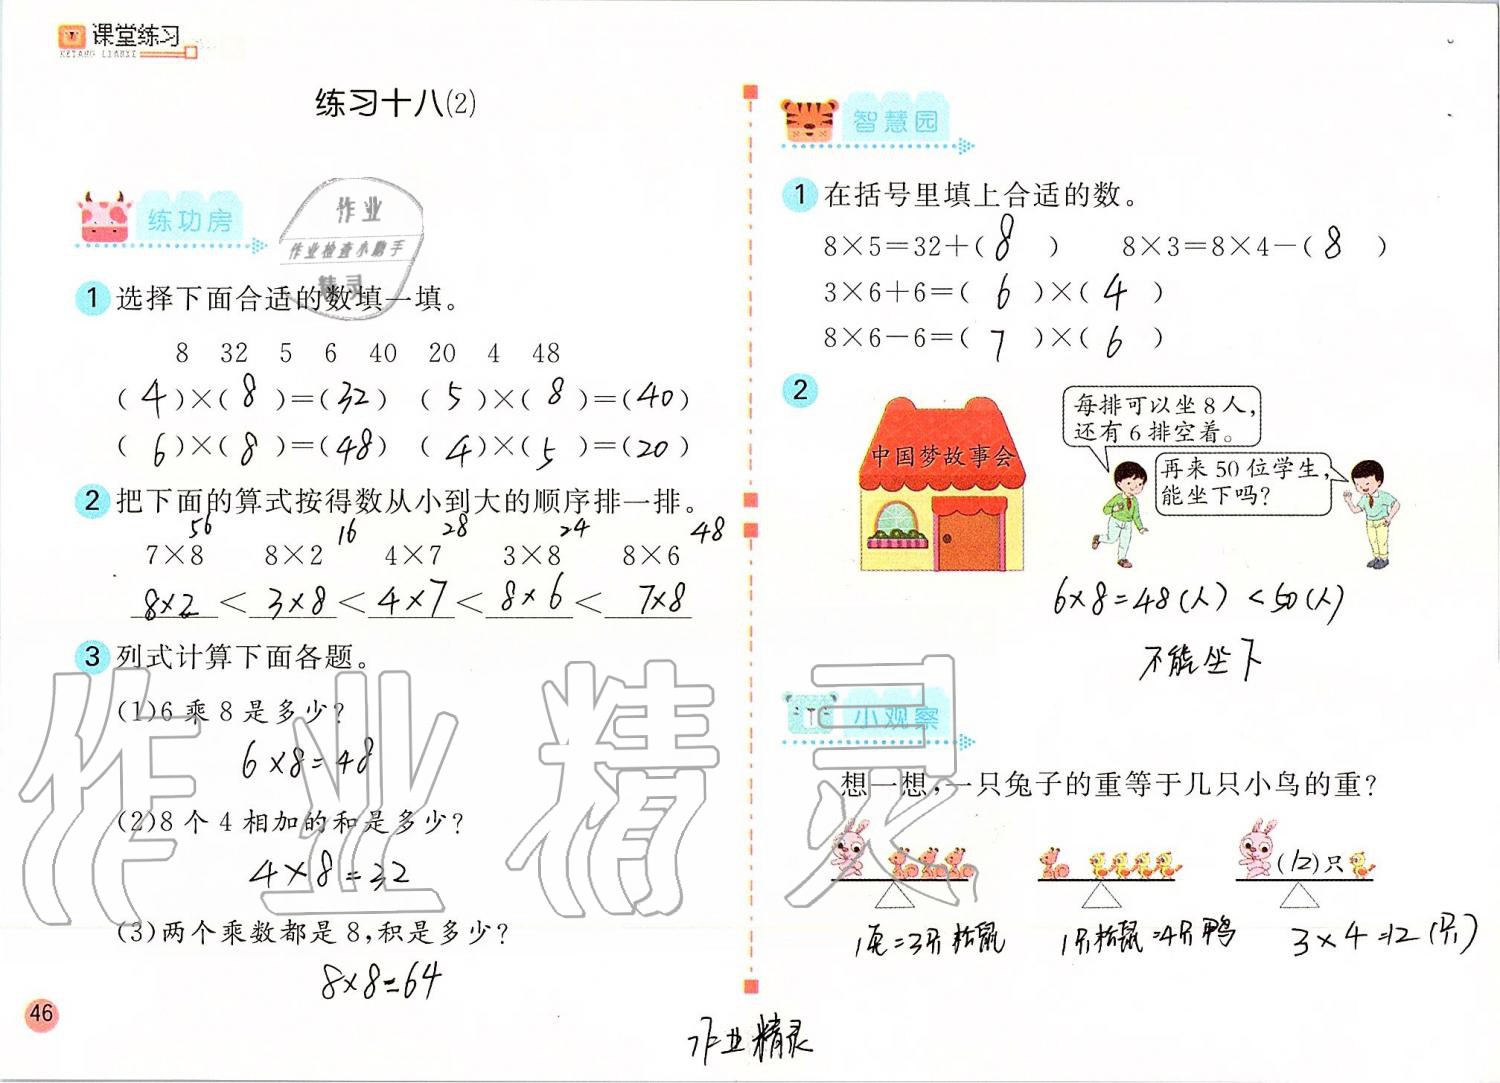 课堂练习
KETANG LIANXI
练习十八(2)
练功房
作业
作业检查小助手
精灵
1 选择下面合适的数填一填。
8 32 5 6 40 20 4 48
(4)×(8)=(32) (5)×(8)=(40)
(6)×(8)=(48) (4)×(5)=(20)
2 把下面的算式按得数从小到大的顺序排一排。
56 16 28 24 48
7×8 8×2 4×7 3×8 8×6
8×2 < 3×8 < 4×7 < 8×6 < 7×8
3 列式计算下面各题。
(1)6乘8是多少?
6×8=48
(2)8个4相加的和是多少?
4×8=32
(3)两个乘数都是8,积是多少?
8×8=64
46
智慧园
1 在括号里填上合适的数。
8×5=32+(8) 8×3=8×4-(8)
3×6+6=(6)×(4)
8×6-6=(7)×(6)
2
中国梦故事会
每排可以坐8人,
还有6排空着。
再来50位学生,
能坐下吗?
6×8=48(人) <50(人)
不能坐下
小观察
想一想,一只兔子的重等于几只小鸟的重?
(12)只
1兔=3只松鼠 1只松鼠=4只鸭 3×4=12(只)
作业精灵
作业精灵